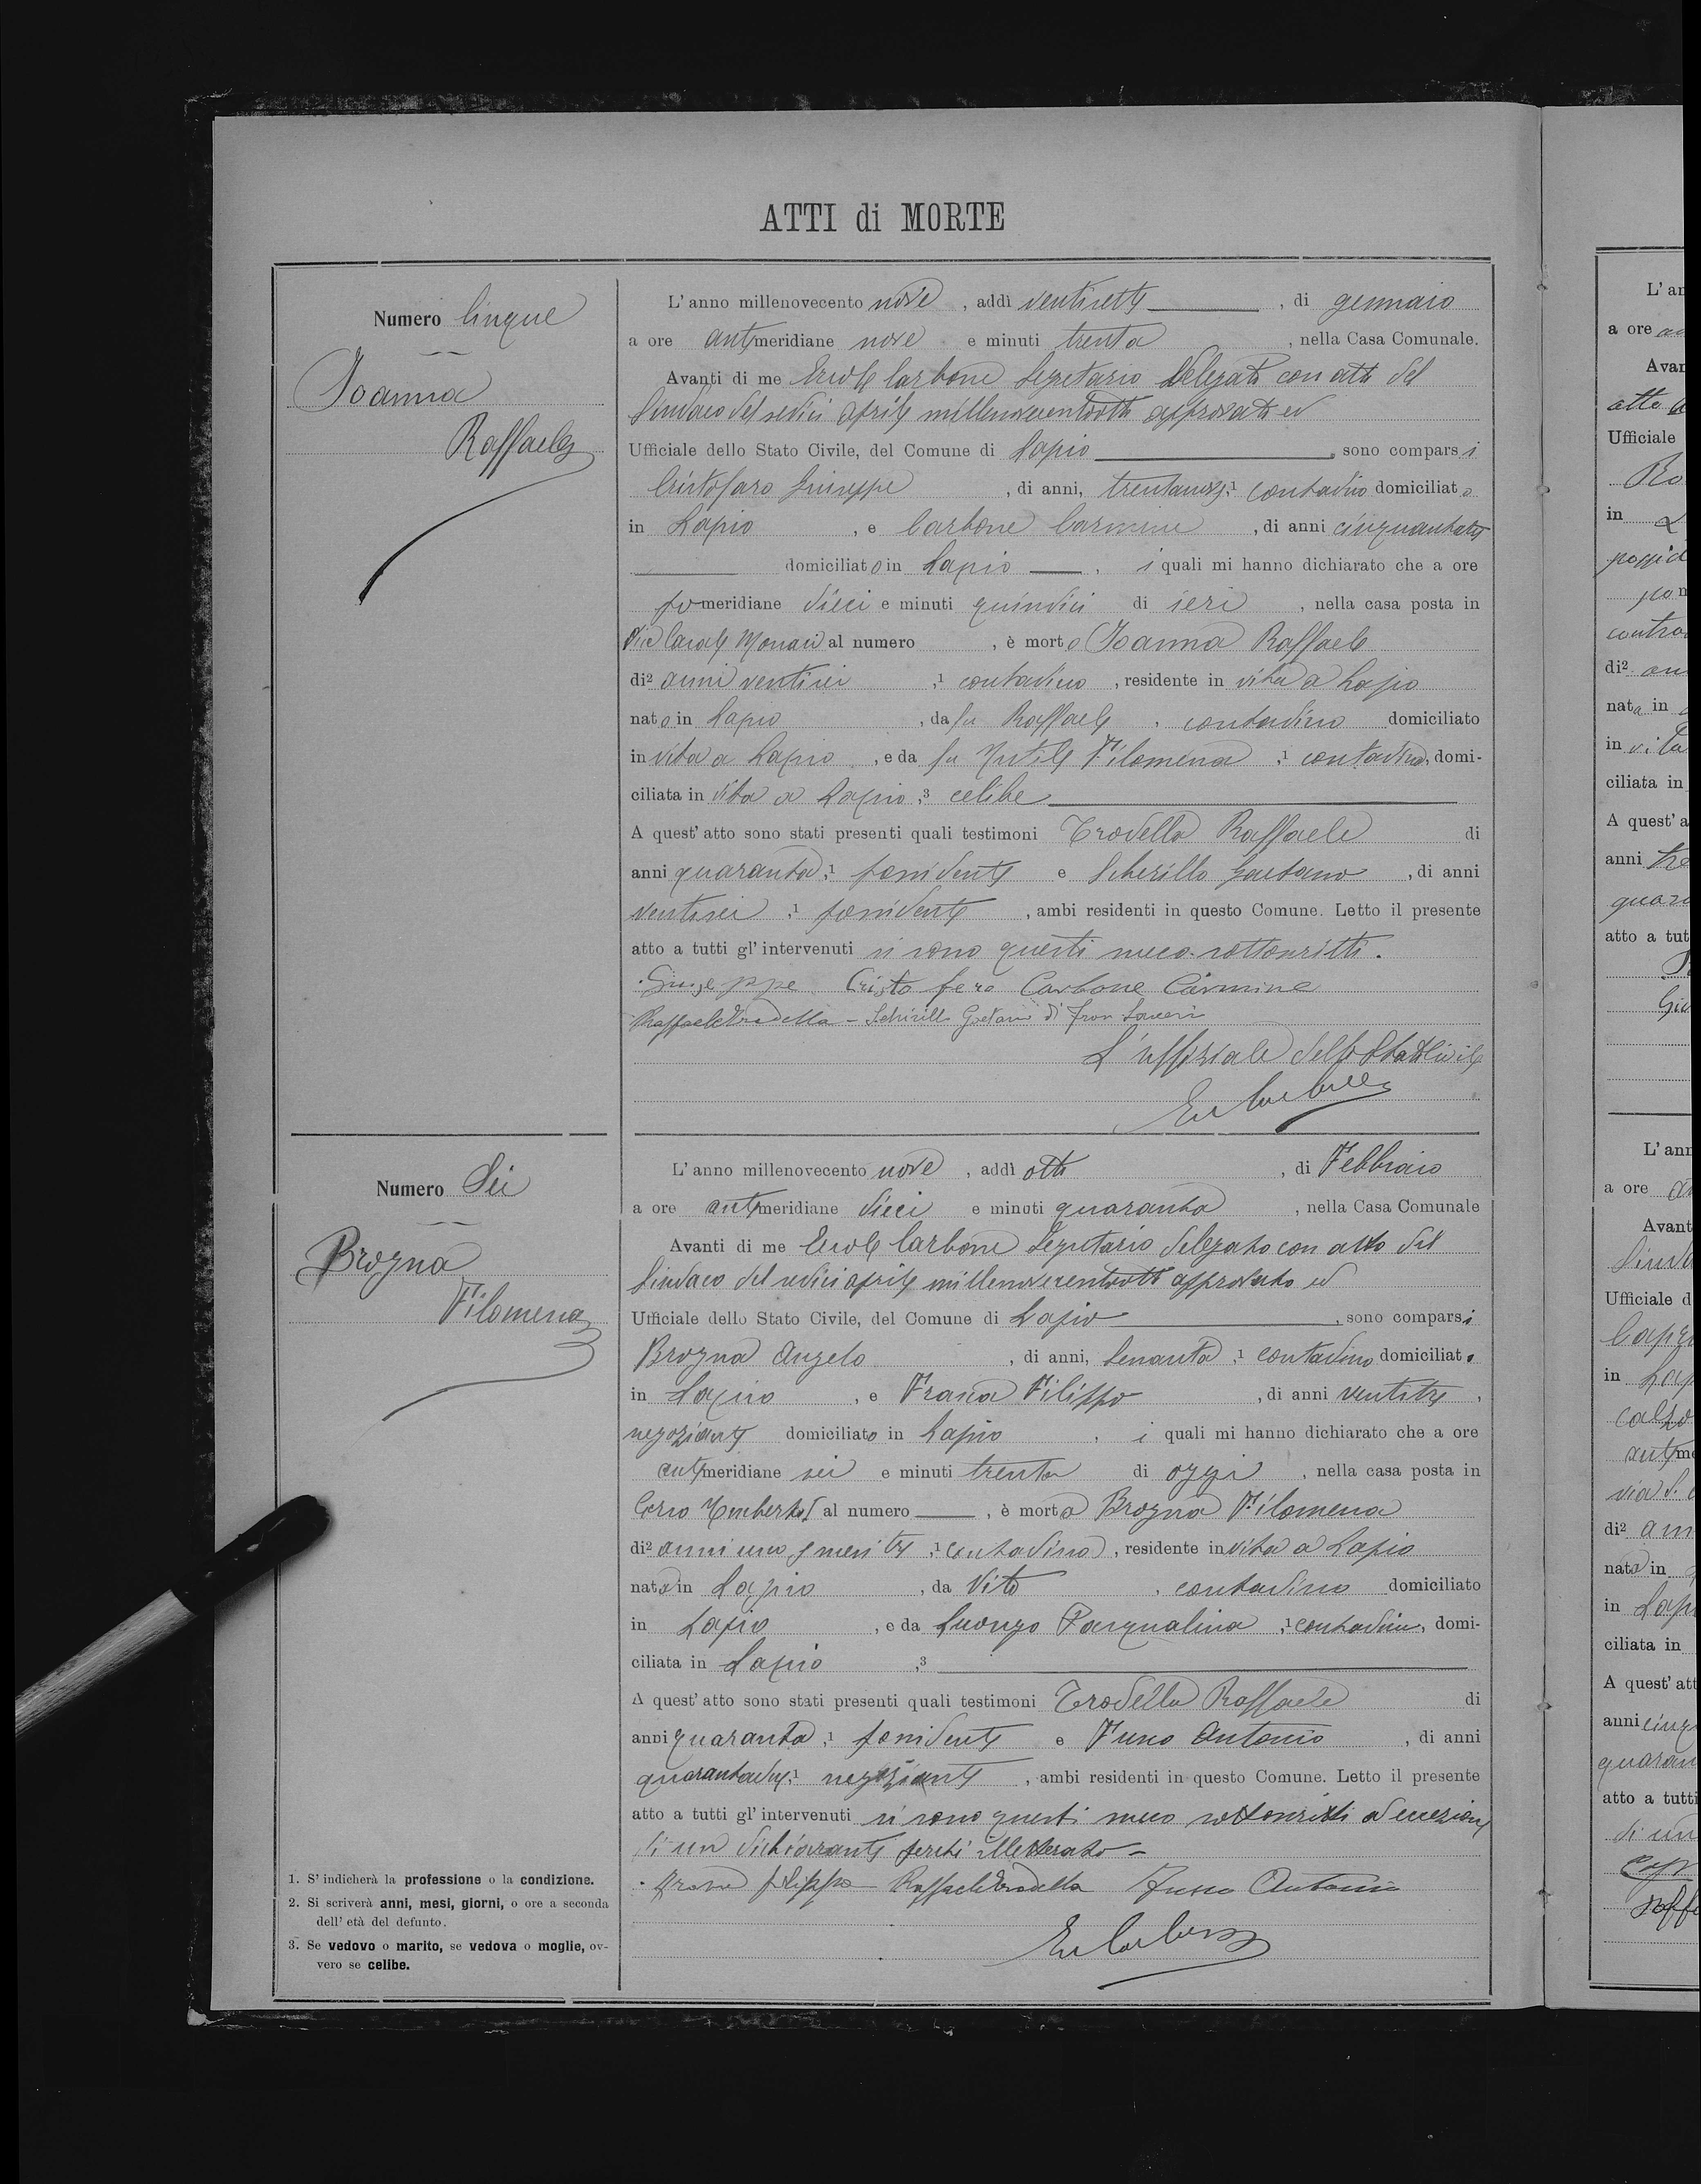 ATTI di MORTE
Numero Cinque
Ioanna
Raffaele
L'anno millenovecento nove, addì ventisette, di gennaio
a ore antimeridiane nove e minuti trenta, nella Casa Comunale.
Avanti di me Ercole Carbone Segretario Delegato con atto del
Sindaco del sedici aprile millenovecentootto approvato ed
Ufficiale dello Stato Civile, del Comune di Lapio, sono comparsi
Cristofaro Giuseppe, di anni, trentanove,1 contadino domiciliato
in Lapio, e Carbone Carmine, di anni
domiciliato in Lapio, i quali mi hanno dichiarato che a ore
pomeridiane dieci e minuti quindici di ieri, nella casa posta in
Via Casale Monaci al numero , è morto Ioanna Raffaele
di2 anni ventisei,1 contadino, residente in vita a Lapio
nato in Lapio, da fu Raffaele, contadino domiciliato
in vita a Lapio, e da fu Filomena,1 contadina, domi-
ciliata in vita a Lapio,3 celibe
A quest'atto sono stati presenti quali testimoni Trodella Raffaele di
anni quaranta,1 possidente e Schirillo Gaetano, di anni
ventisei,1 possidente, ambi residenti in questo Comune. Letto il presente
atto a tutti gl'intervenuti si sono questi meco sottoscritti.
Giuseppe Cristofero Carbone Carmine
Raffaele Trodella - Schirillo Gaetano di Fran Saveri
L'uffiziale dello Stato Civile
Er Carbone
Numero Sei
Brogna
Filomena
L'anno millenovecento nove, addì otto, di Febbraio
a ore antimeridiane dieci e minuti quaranta, nella Casa Comunale
Avanti di me Ercole Carbone Segretario Delegato con atto del
Sindaco del sedici aprile millenovecentootto approvato ed
Ufficiale dello Stato Civile, del Comune di Lapio, sono comparsi
Brogna Angelo, di anni, sessanta,1 contadino domiciliato
in Lapio, e Filippo, di anni ventitre,
negoziante domiciliato in Lapio, i quali mi hanno dichiarato che a ore
antimeridiane sei e minuti trenta di oggi, nella casa posta in
Corso Umberto I al numero , è morta Brogna Filomena
di2 anni uno e mesi tre,1 contadina, residente in vita a Lapio
nata in Lapio, da Vito, contadino domiciliato
in Lapio, e da Luongo Pasqualina,1 contadina, domi-
ciliata in Lapio,3
A quest'atto sono stati presenti quali testimoni Trodella Raffaele di
anni quaranta,1 possidente e Antonio, di anni
quarantadue,1 negoziante, ambi residenti in questo Comune. Letto il presente
atto a tutti gl'intervenuti si sono questi meco sottoscritti ad eccezione
di un dichiarante perché illetterato -
Filippo - Raffaele Trodella Antonio
Er Carbone
1. S'indicherà la professione o la condizione.
2. Si scriverà anni, mesi, giorni, o ore a seconda
dell'età del defunto.
3. Se vedovo o marito, se vedova o moglie, ov-
vero se celibe.
L'an
a ore
Avan
atto
Ufficiale
Ro
in
possid
contra
di2 an
nata in
in vita
ciliata in
A quest'a
anni tre
quara
atto a tut
L'ann
a ore
Avant
Sinda
Ufficiale d
in Lap
antime
via S.
di2 ann
nata in
in Lapi
ciliata in
A quest'att
anni cinq
quaran
atto a tutti
di un